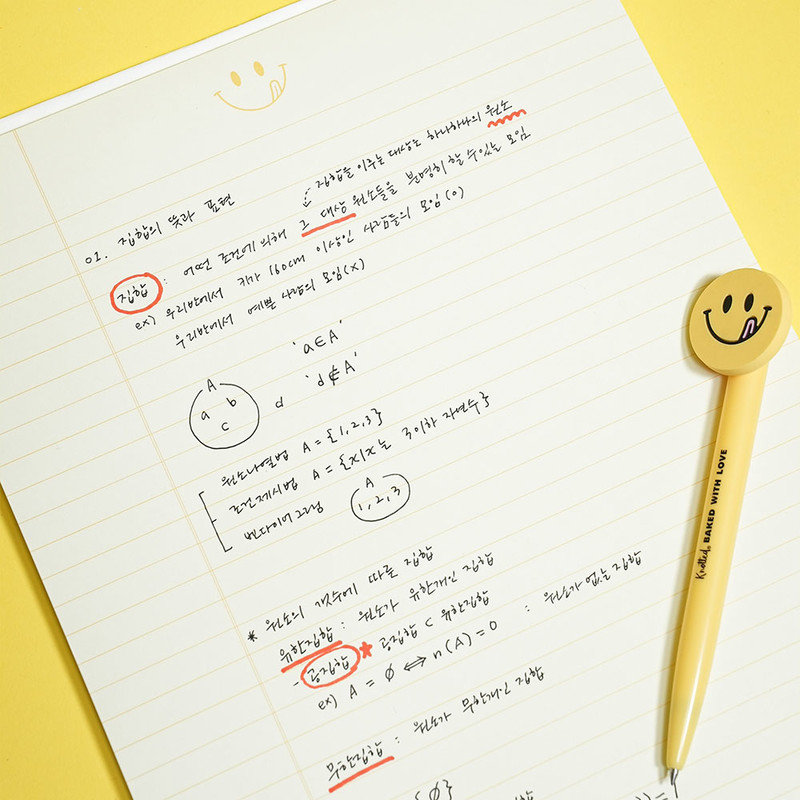 집합을 이루는 대상은 하나하나의 원소
01. 집합의 뜻과 표현
집합 : 어떤 조건에 의해 그 대상 원소들을 분명히 할 수 있는 모임
ex) 우리반에서 키가 160cm 이상인 사람들의 모임(o)
우리반에서 예쁜 사람의 모임(x)
'a∈A'
A
a b
c
d
'd∉A'
원소나열법 A = {1,2,3}
조건제시법 A = {x|x는 3이하 자연수}
벤다이어그램
A
1,2,3
* 원소의 갯수에 따른 집합
유한집합 : 원소가 유한개인 집합
- 공집합 * 공집합 ⊂ 유한집합 : 원소가 없는 집합
ex) A = ø ⇔ n(A) = 0
무한집합 : 원소가 무한개인 집합
{ø}
Knotted. BAKED WITH LOVE